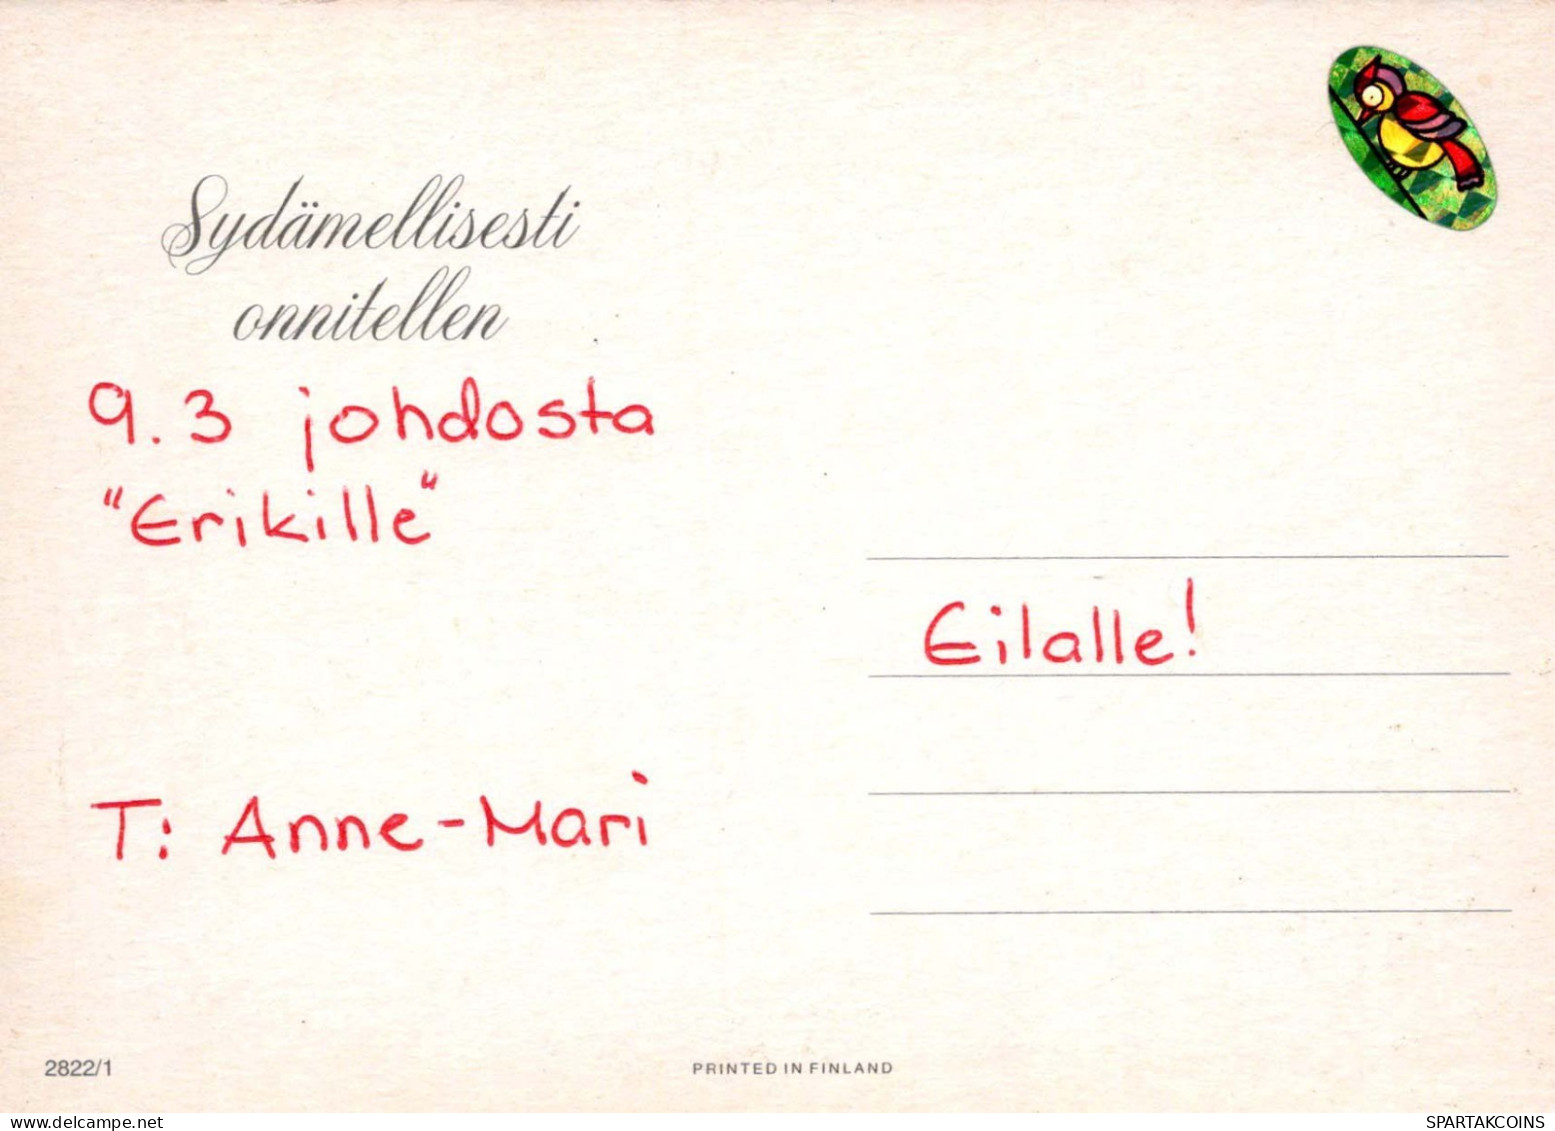 Sydämellisesti
onnitellen
9.3 johdosta
"Erikille"
T: Anne-Mari
Eilalle!
2822/1
PRINTED IN FINLAND
SPARTAKCOINS